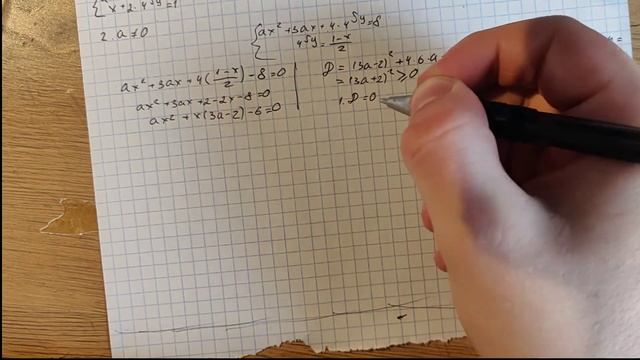 x + 2·4^5y = 1
2. a ≠ 0
{ ax² + 3ax + 4·4^5y = 8
4^5y = (1-x)/2
ax² + 3ax + 4((1-x)/2) - 8 = 0
ax² + 3ax + 2 - 2x - 8 = 0
ax² + x(3a-2) - 6 = 0
D = (3a-2)² + 4·6·a
= (3a+2)² ⩾ 0
1. D = 0